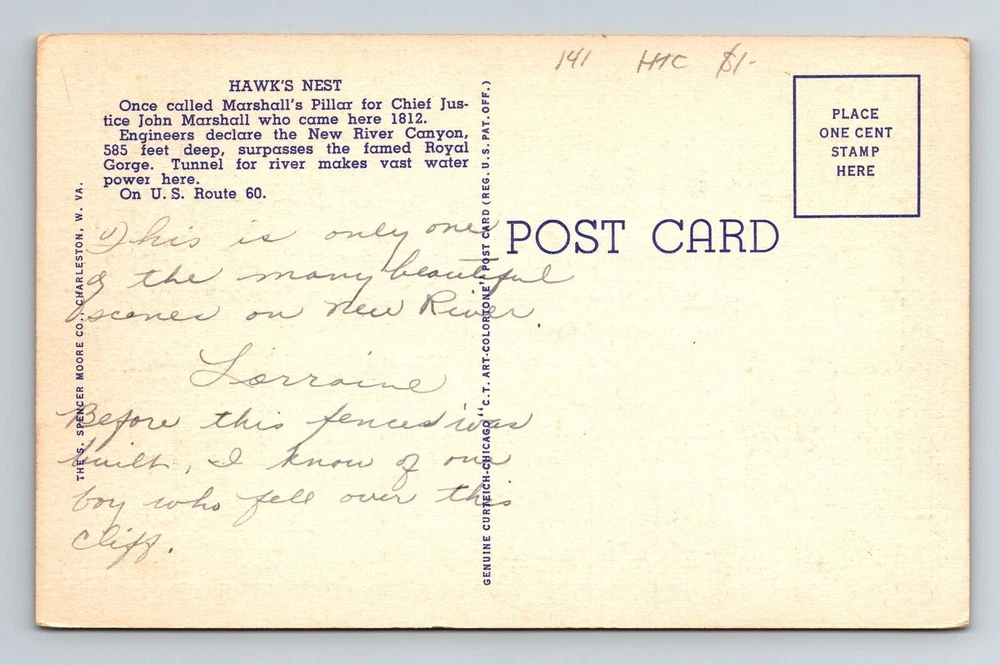 141 HTC $1-
HAWK'S NEST
Once called Marshall's Pillar for Chief Jus-
tice John Marshall who came here 1812.
Engineers declare the New River Canyon,
585 feet deep, surpasses the famed Royal
Gorge. Tunnel for river makes vast water
power here.
On U. S. Route 60.
This is only one
of the many beautiful
scenes on New River.
Lorraine
Before this fence was
built, I know of one
boy who fell over this
cliff.
THE S. SPENCER MOORE CO., CHARLESTON, W. VA.
GENUINE CURTEICH-CHICAGO "C.T. ART-COLORTONE" POST CARD (REG. U.S. PAT. OFF.)
POST CARD
PLACE
ONE CENT
STAMP
HERE